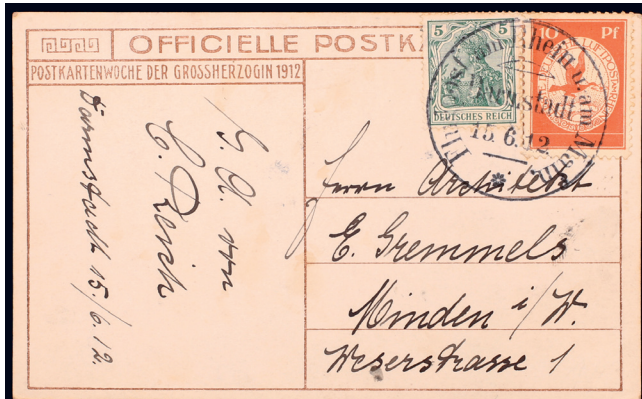 OFFICIELLE POSTKA
POSTKARTENWOCHE DER GROSSHERZOGIN 1912
5 5
DEUTSCHES REICH
10 Pf
Flugpost am Rhein u. am Main
Darmstadt
15.6.12
Darmstadt 15./6.12.
S. A. von
C. Reich
Herrn Architekt
E. Gremmels
Minden i/W.
Weserstrasse 1